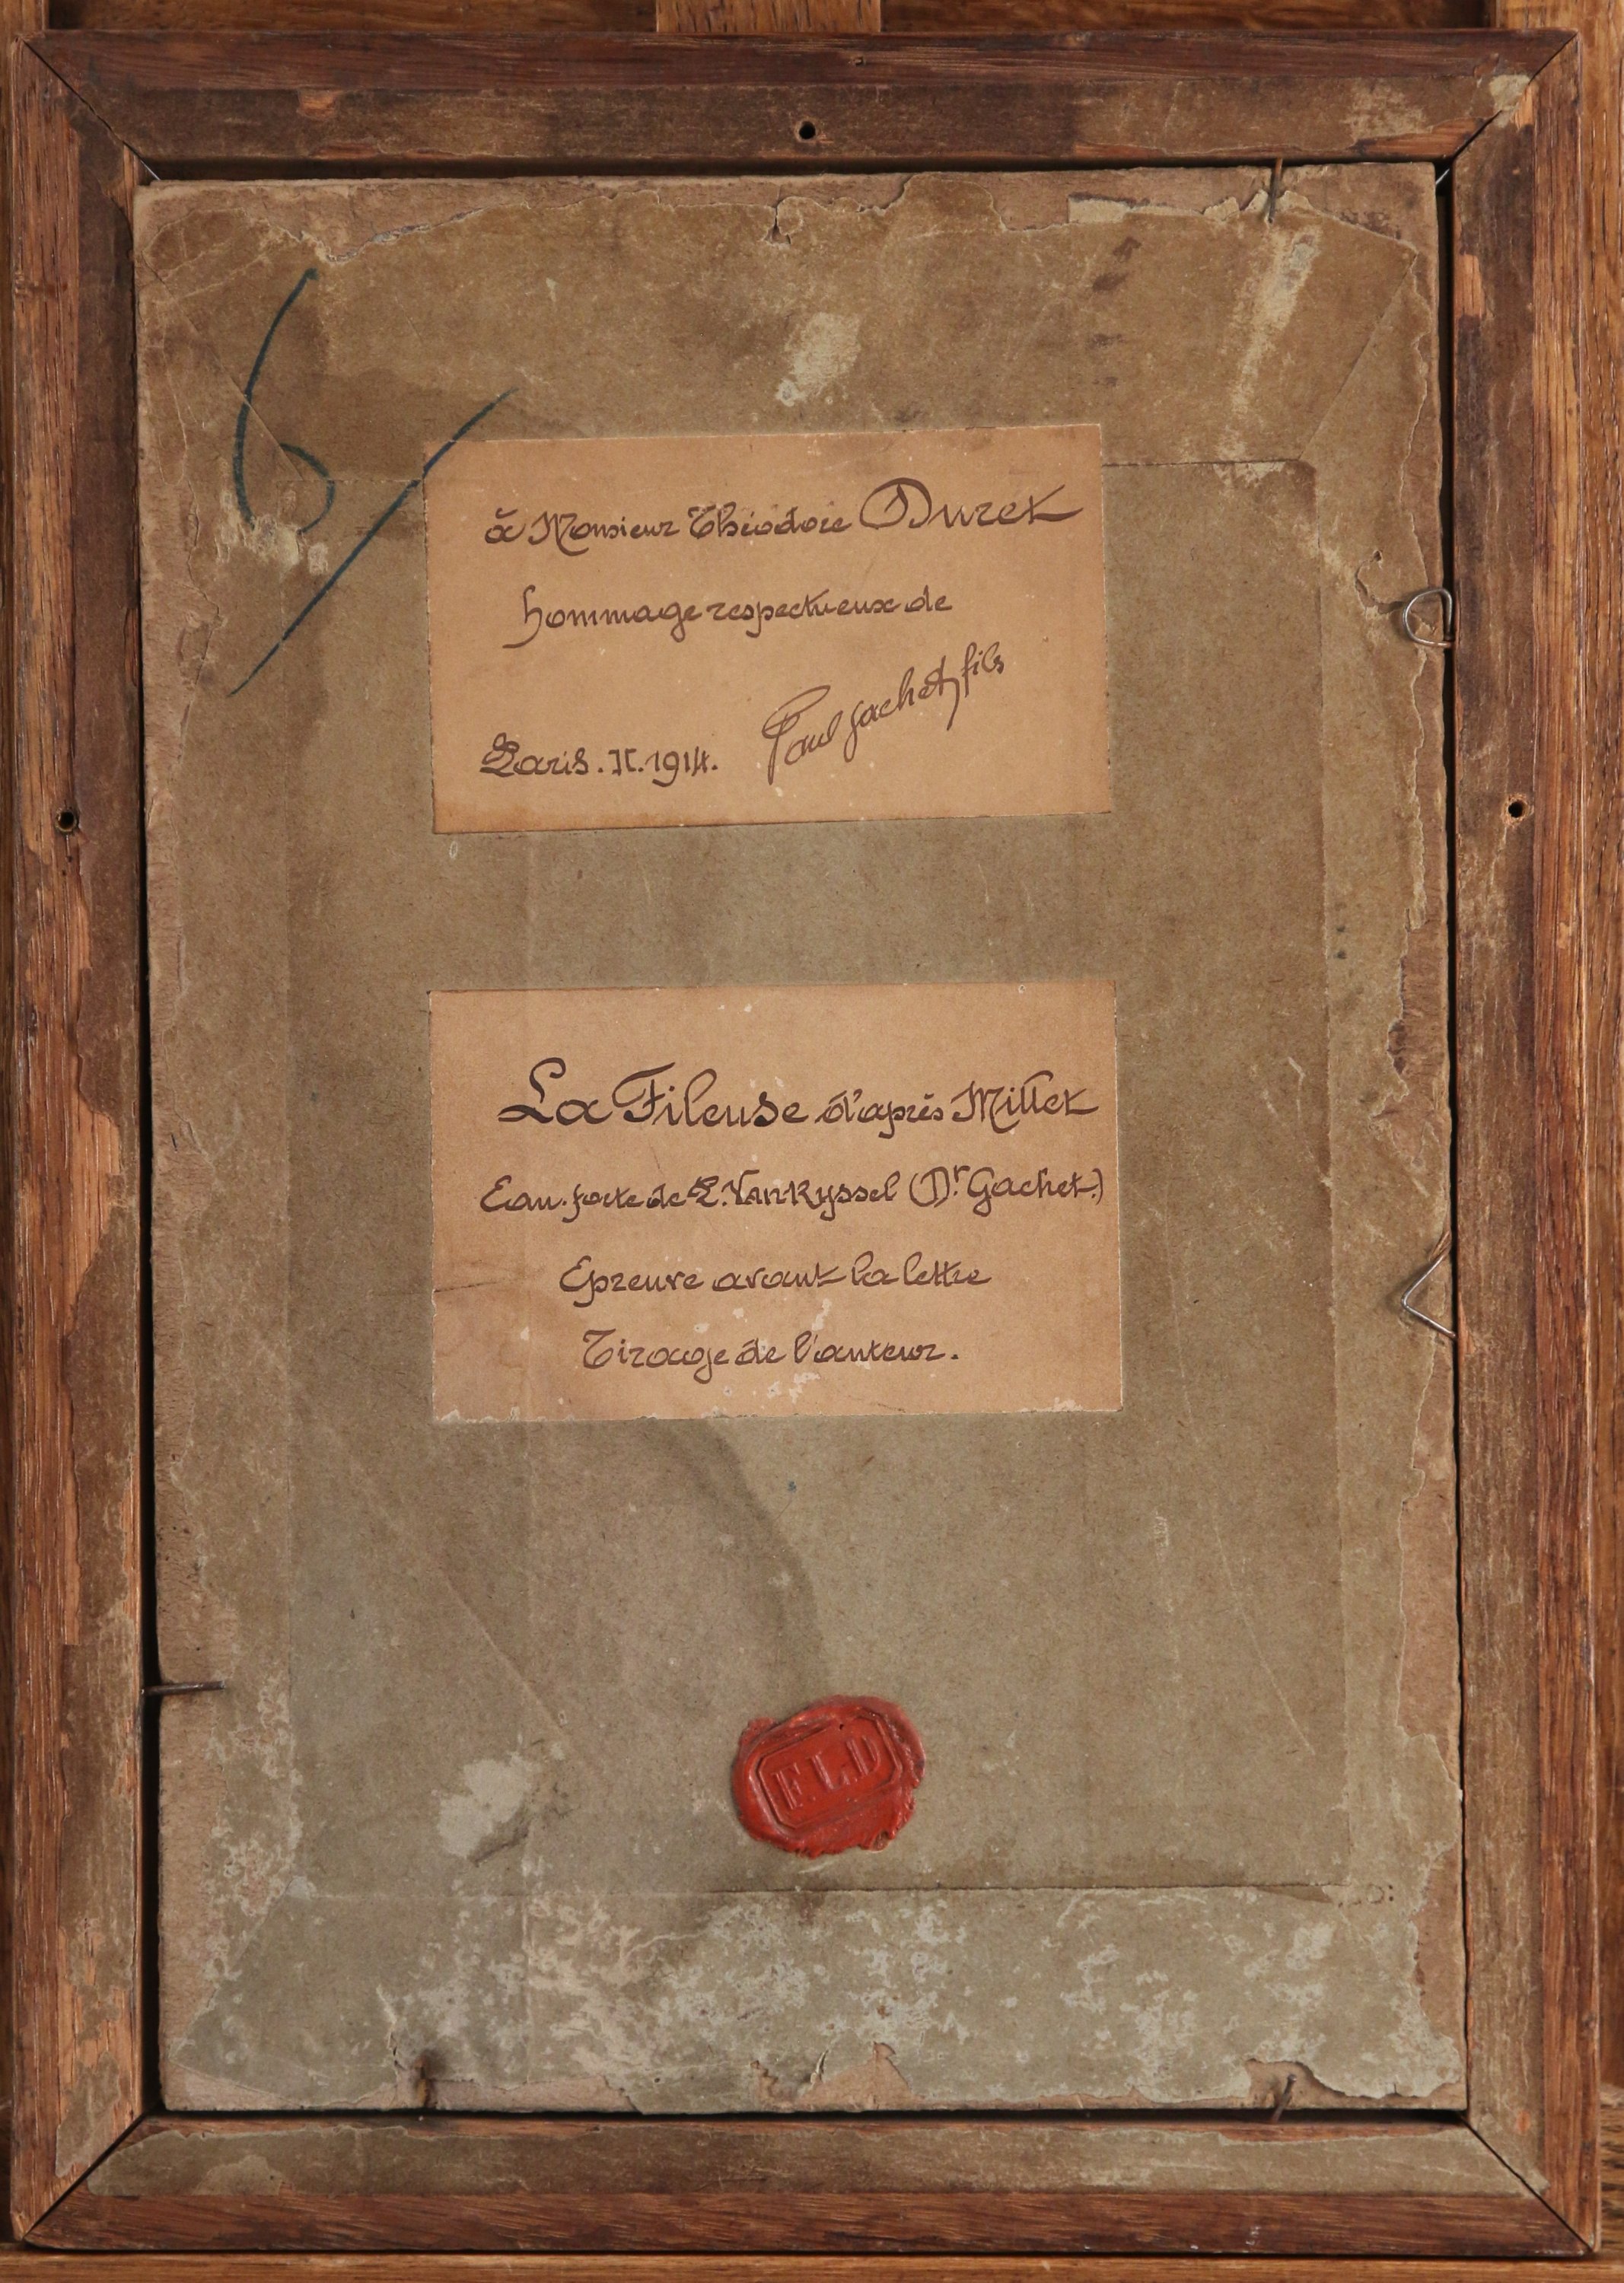 6/
à Monsieur Théodore Duret
hommage respectueux de
Paul Gachet fils
Paris. II. 1914.
La Fileuse d'après Millet
Eau-forte de P. Van Ryssel (Dr. Gachet.)
Epreuve avant la lettre
Tirage de l'auteur.